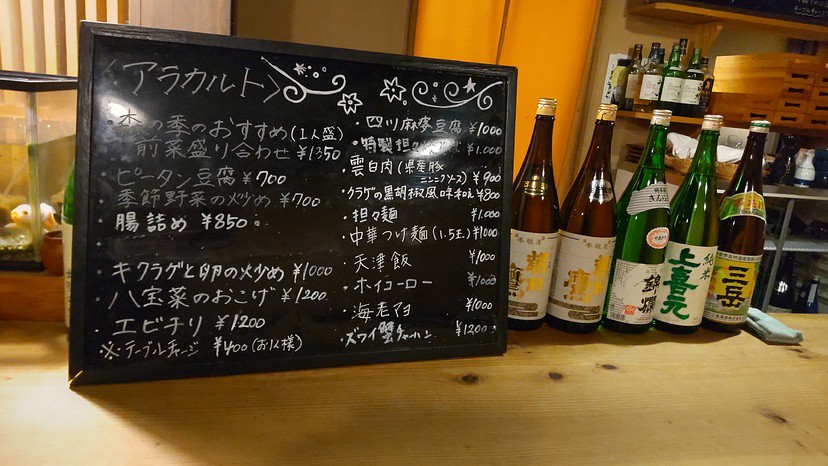 〈アラカルト〉
・本の季のおすすめ(1人盛)
前菜盛り合わせ ¥1350
・ピータン豆腐 ¥700
・季節野菜の炒め ¥700
・腸詰め ¥850
・キクラゲと卵の炒め ¥1000
・八宝菜のおこげ ¥1200
・エビチリ ¥1200
※・テーブルチャージ ¥400(お1人様)
・四川麻婆豆腐 ¥1000
・特製担 ¥1.000
・雲白肉(県産豚
ニンニクソース) ¥900
・クラゲの黒胡椒風味和え ¥800
・担々麺 ¥1.000
・中華つけ麺(1.5玉) ¥1000
・天津飯 ¥1000
・ホイコーロー ¥1000
・海老マヨ ¥1000
・ズワイ蟹チャーハン ¥1200
本醸造
本醸造
錦爛
純米
上喜元
三岳